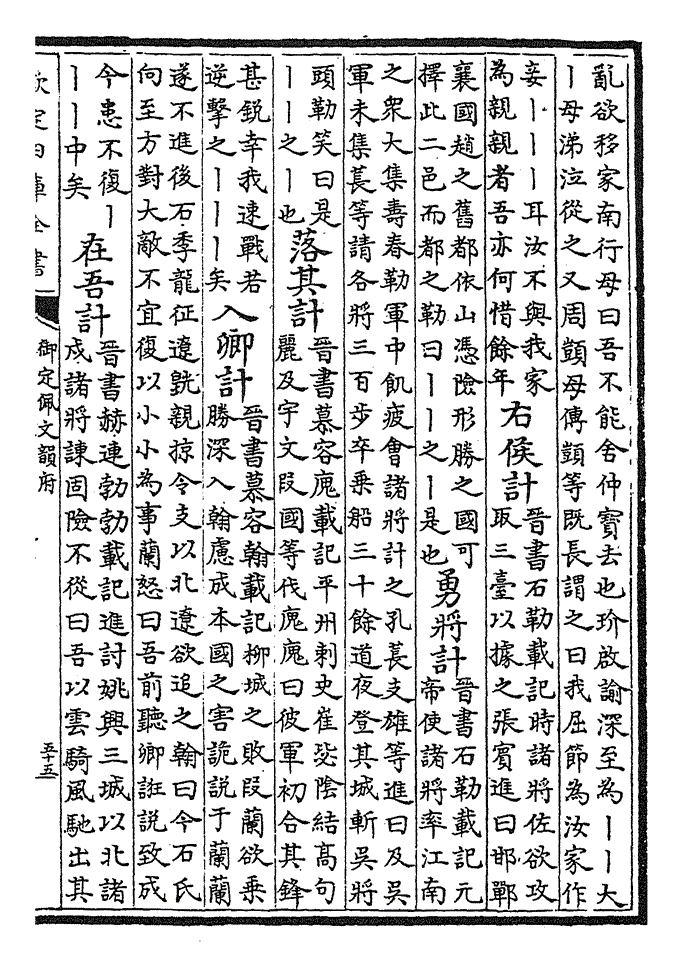 亂欲移家南行母曰吾不能舍仲寶去也玠啟諭深至為丨丨大
丨母涕泣從之又周顗母傳顗等既長謂之曰我屈節為汝家作
妾丨丨丨耳汝不與我家
為親親者吾亦何惜餘年
右侯計
晉書石勒載記時諸將佐欲攻
取三臺以據之張賓進曰邯鄲
襄國趙之舊都依山憑險形勝之國可
擇此二邑而都之勒曰丨丨之丨是也
勇將計
晉書石勒載記元
帝使諸將率江南
之衆大集壽春勒軍中飢疲會諸將計之孔萇支雄等進曰及吳
軍未集萇等請各將三百步卒乗船三十餘道夜登其城斬吳將
頭勒笑曰是
丨丨之丨也
落其計
晉書慕容廆載記平州刺史崔毖陰結高句
麗及宇文段國等伐廆廆曰彼軍初合其鋒
甚銳幸我速戰若
逆擊之丨丨丨矣
入卿計
晉書慕容翰載記柳城之敗段蘭欲乗
勝深入翰慮成本國之害詭說于蘭蘭
遂不進後石季龍征遼毀親掠令支以北遼欲追之翰曰今石氏
向至方對大敵不宜復以小小為事蘭怒曰吾前聽卿誑說致成
今患不復丨
丨丨中矣
在吾計
晉書赫連勃勃載記進討姚興三城以北諸
戍諸將諫固險不從曰吾以雲騎風馳出其
欽定四庫全書
御定佩文韻府
五十五